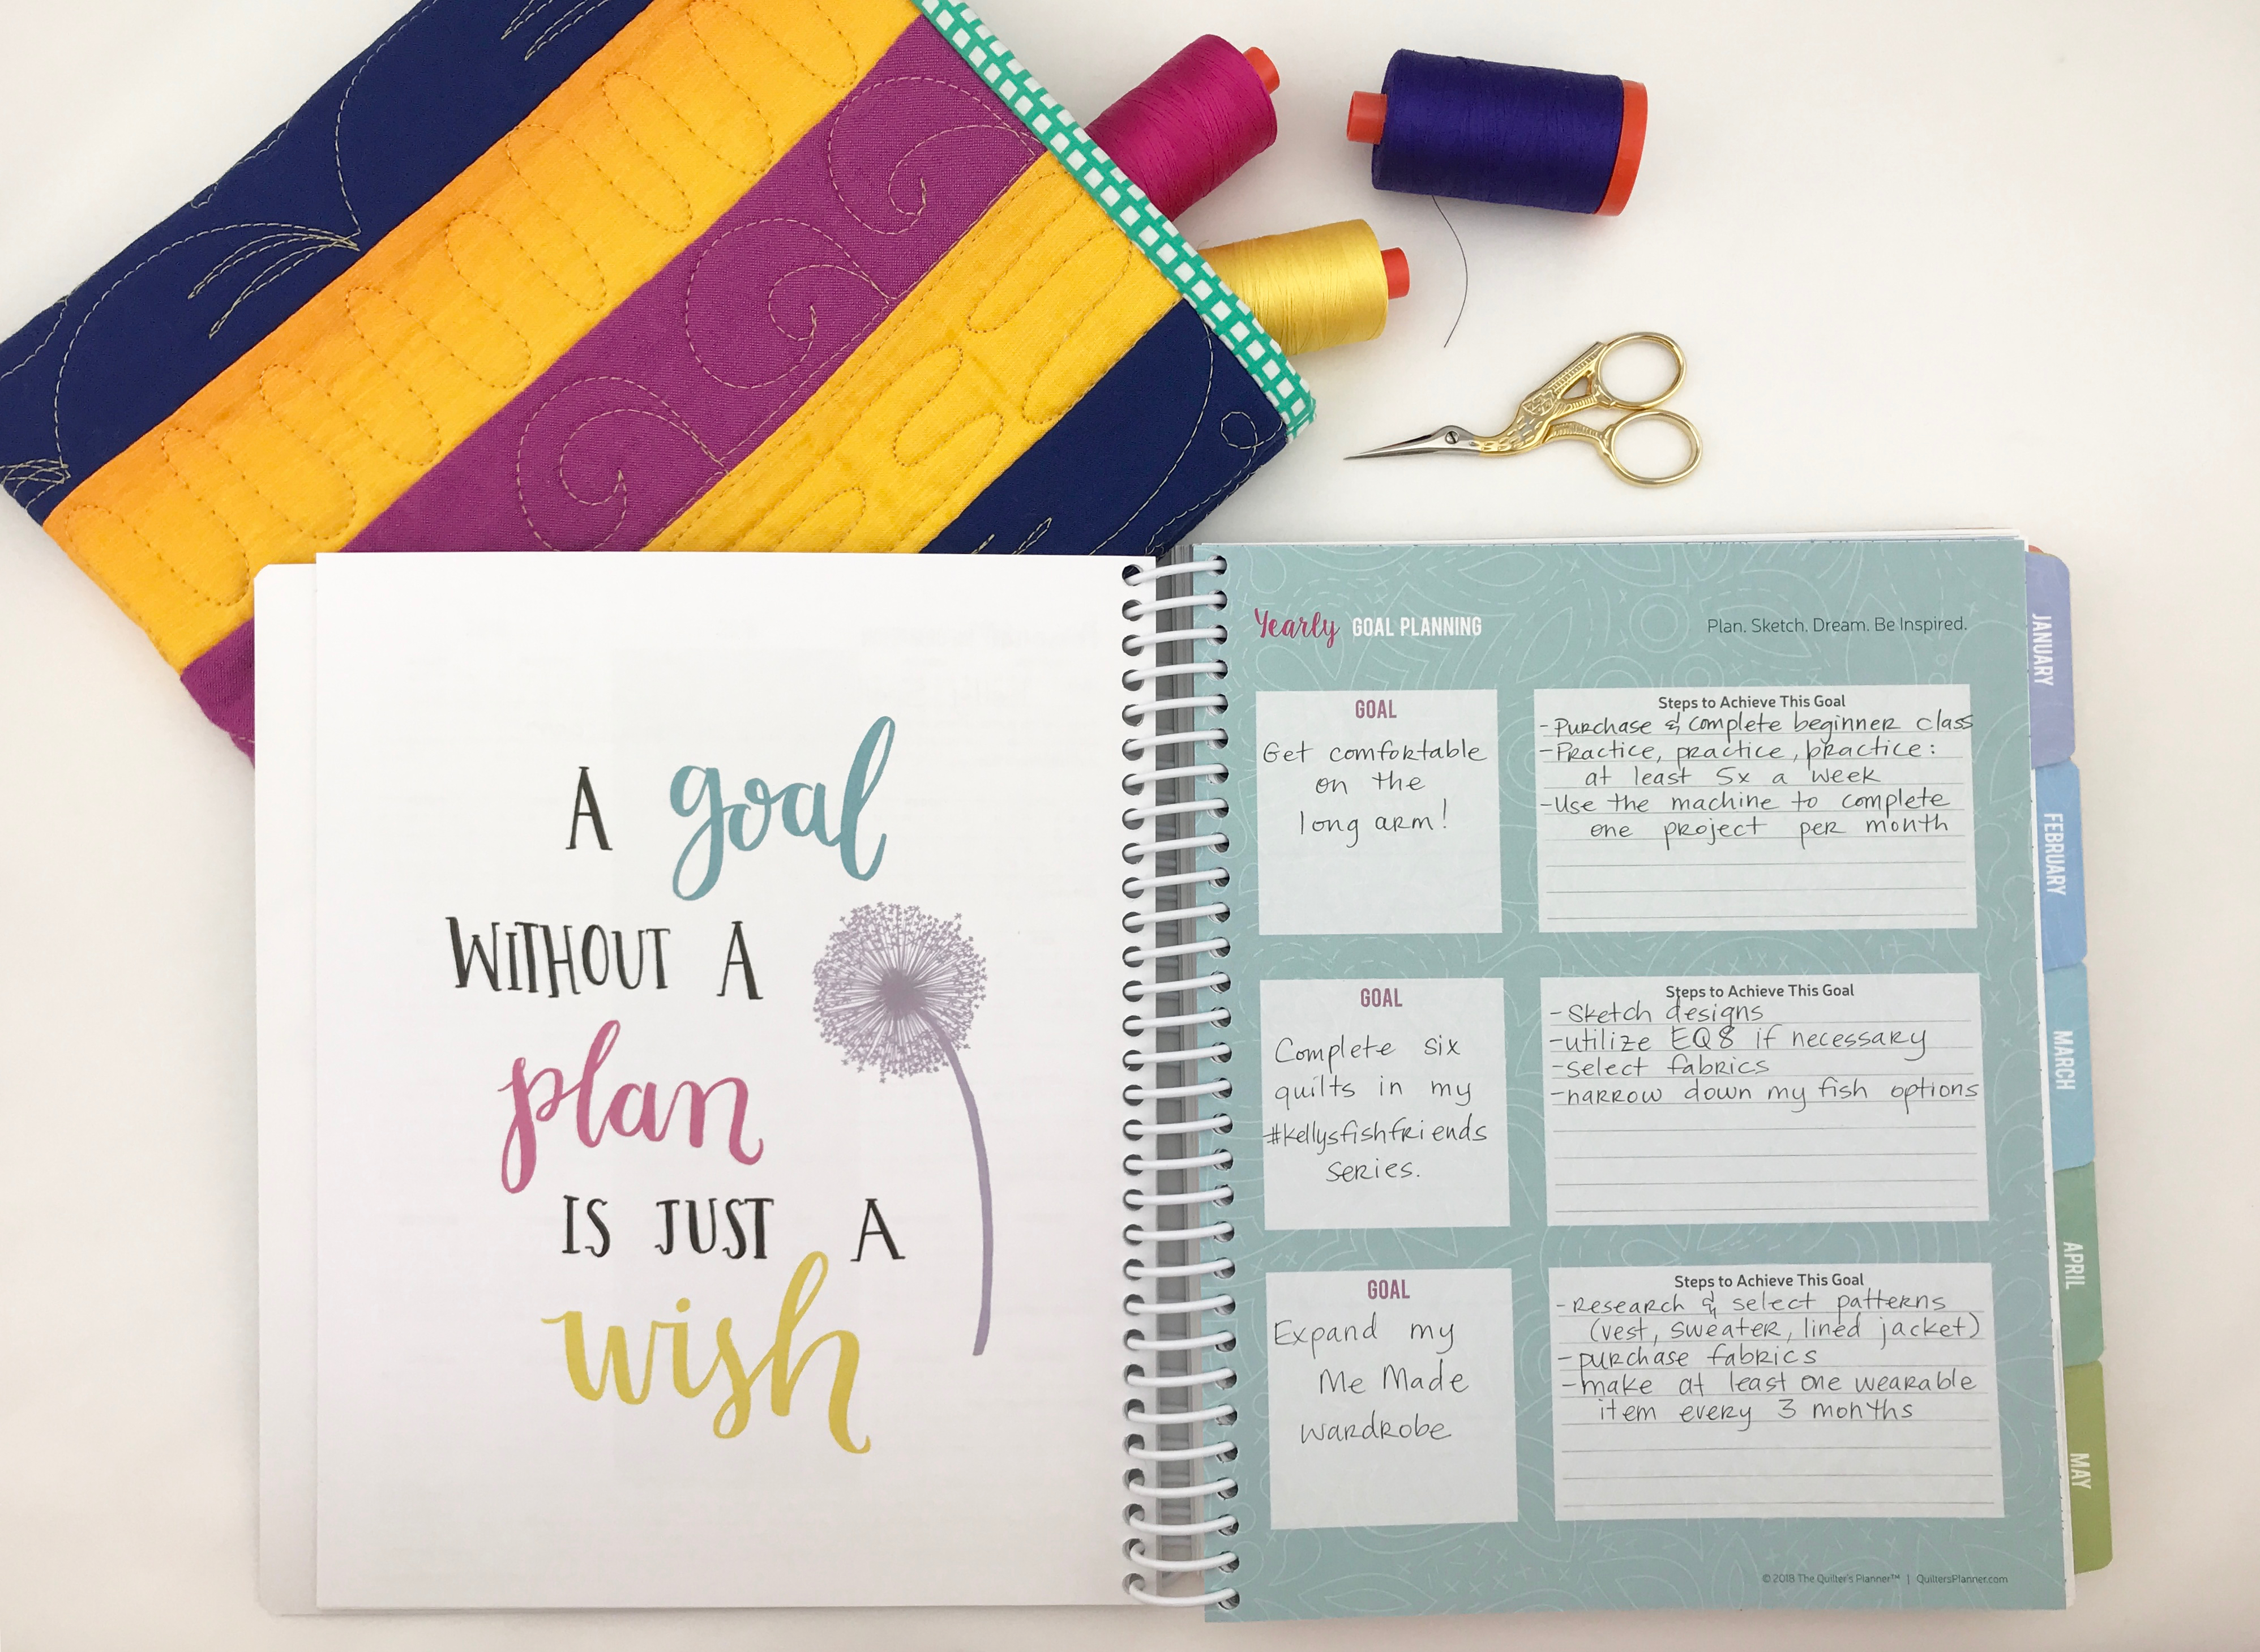 A goal
WITHOUT A
plan
IS JUST A
wish
Yearly GOAL PLANNING
Plan. Sketch. Dream. Be Inspired.
GOAL
Get comfortable
on the
long arm!
Steps to Achieve This Goal
-Purchase & complete beginner class
-Practice, practice, practice:
at least 5x a week
-Use the machine to complete
one project per month
GOAL
Complete six
quilts in my
#kellysfishfriends
series.
Steps to Achieve This Goal
-Sketch designs
-utilize EQ8 if necessary
-select fabrics
-narrow down my fish options
GOAL
Expand my
Me Made
wardrobe
Steps to Achieve This Goal
-Research & select patterns
(vest, sweater, lined jacket)
-purchase fabrics
-make at least one wearable
item every 3 months
© 2018 The Quilter's Planner™ | QuiltersPlanner.com
JANUARY
FEBRUARY
MARCH
APRIL
MAY